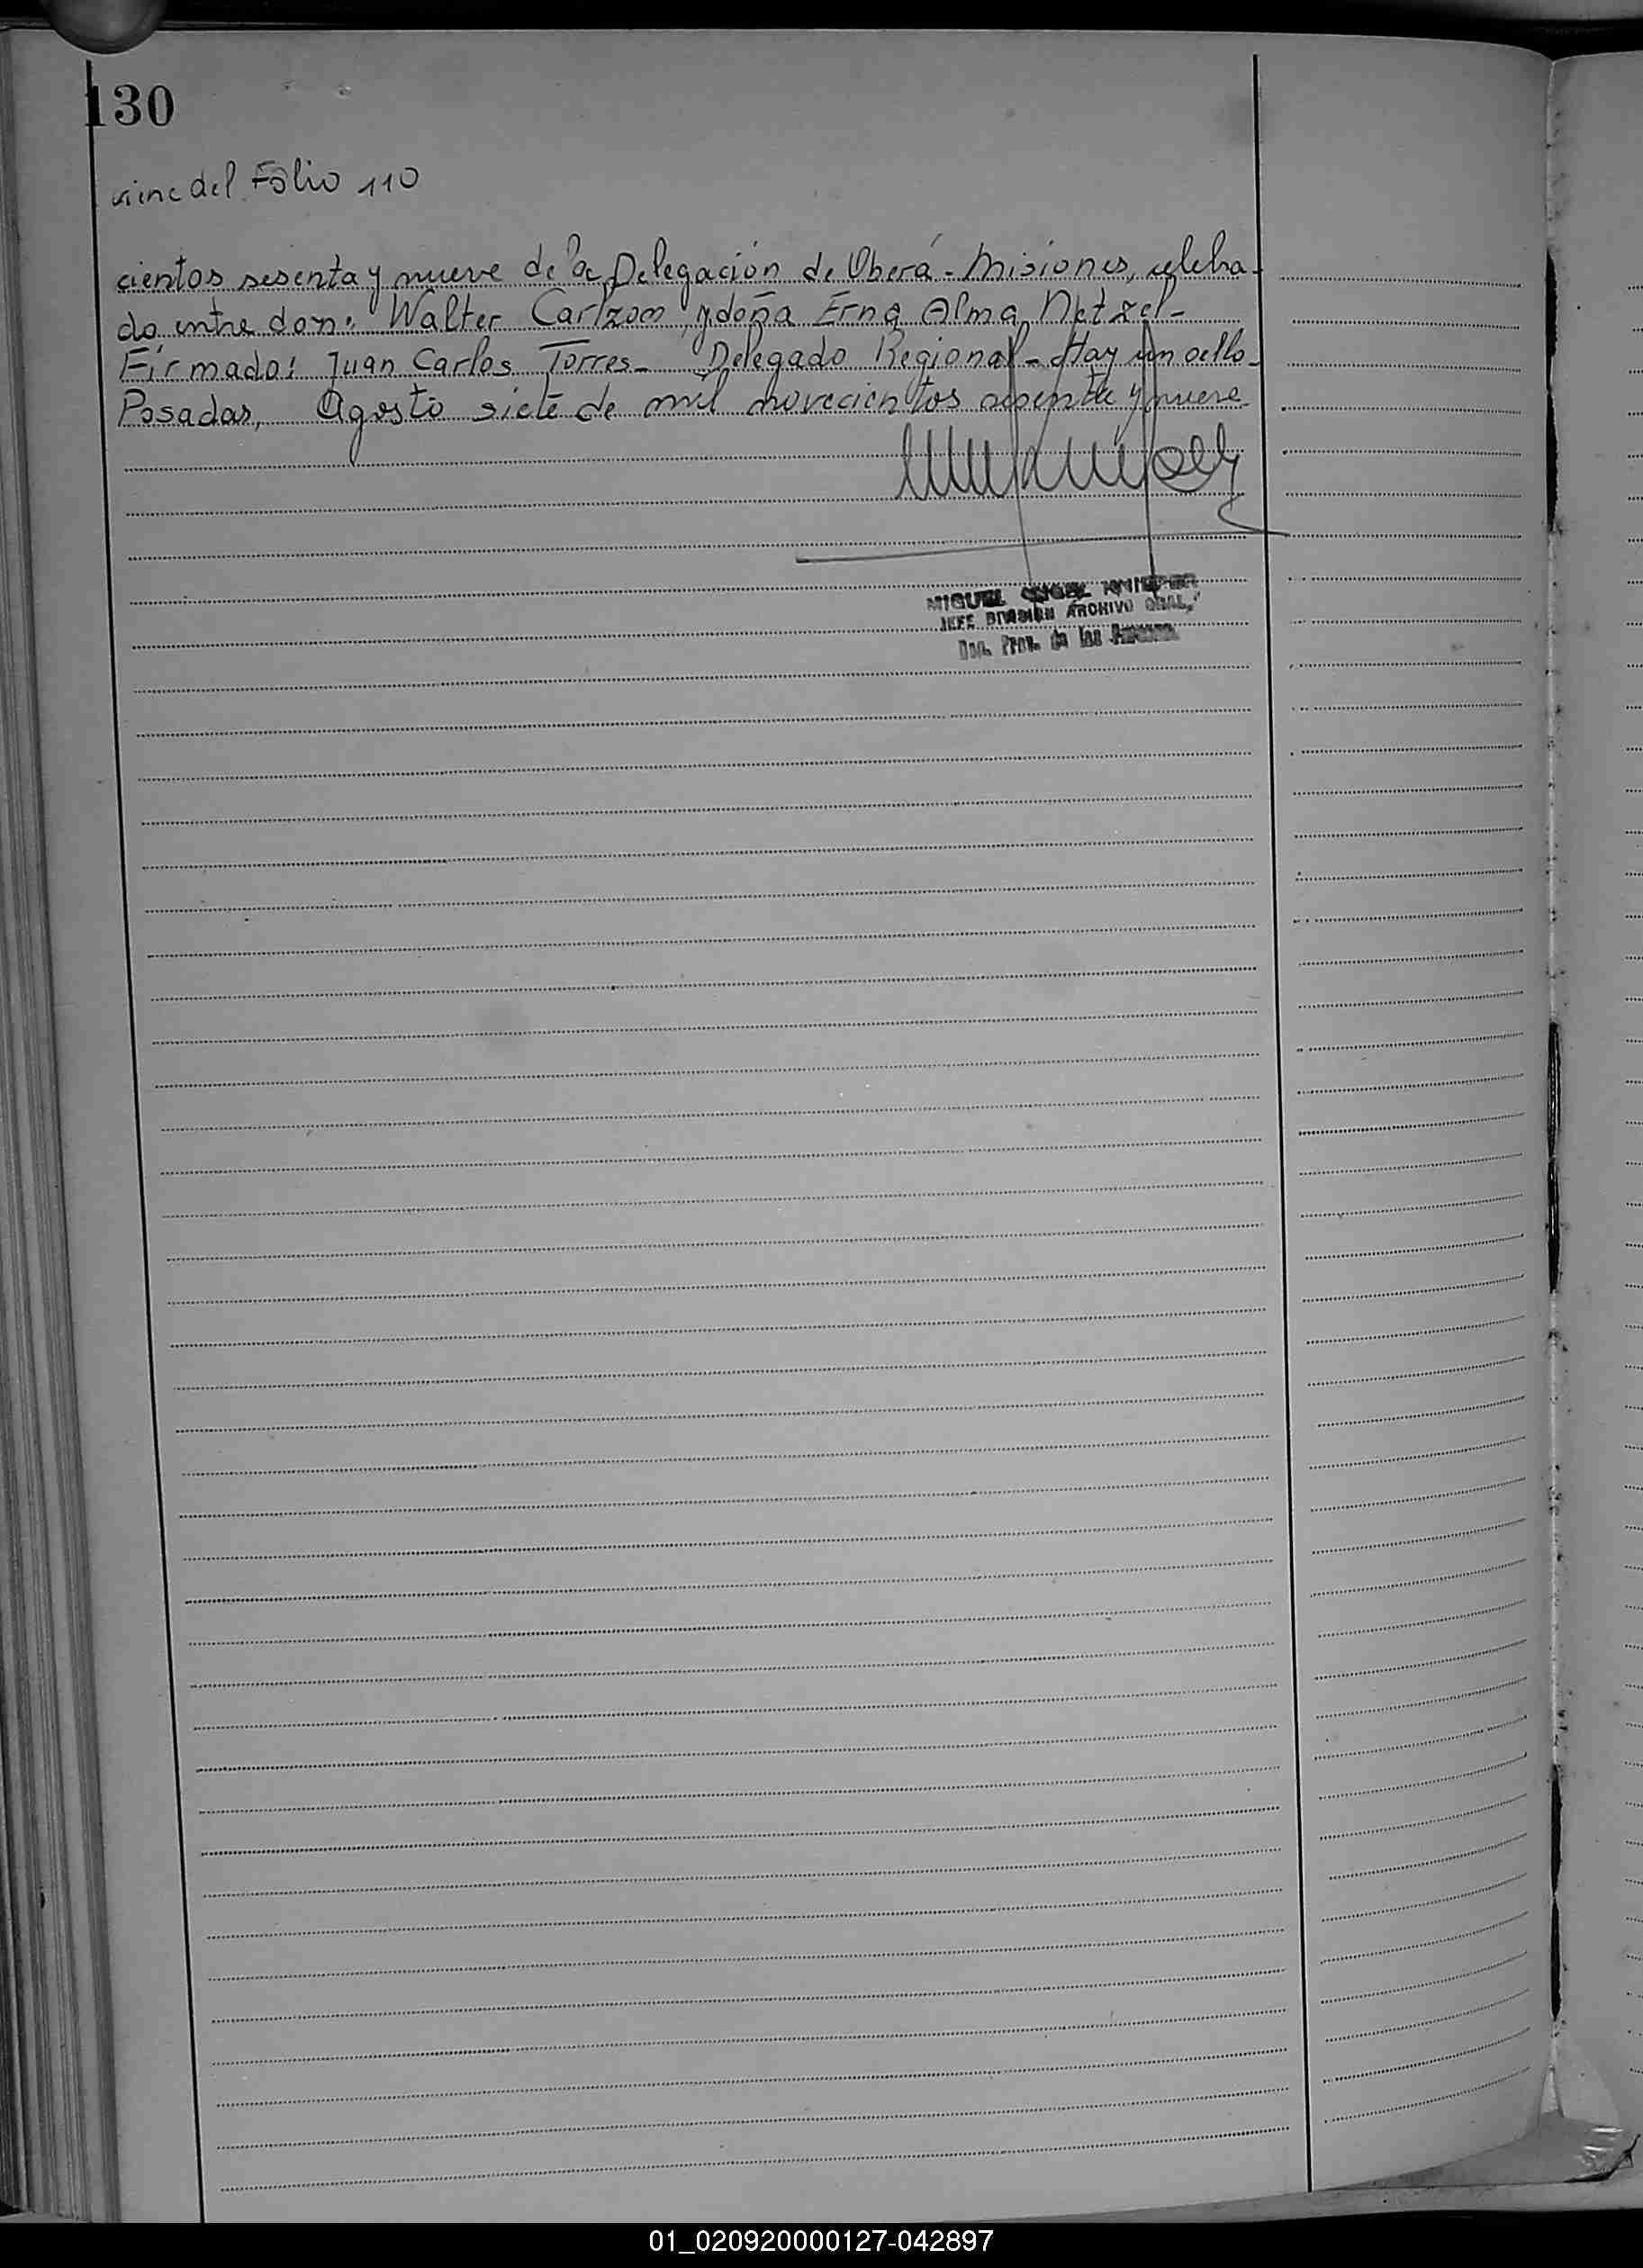 130
viene del Folio 110
cientos sesenta y nueve de la Delegación de Oberá - Misiones, celebra-
do entre don: Walter Carlzom y doña Erna Alma Netzel -
Firmado: Juan Carlos Torres - Delegado Regional - Hay un sello -
Posadas, Agosto siete de mil novecientos sesenta y nueve
MIGUEL ANGEL
JEFE DIVISION ARCHIVO GRAL.
Prov. de las Personas
01_020920000127-042897